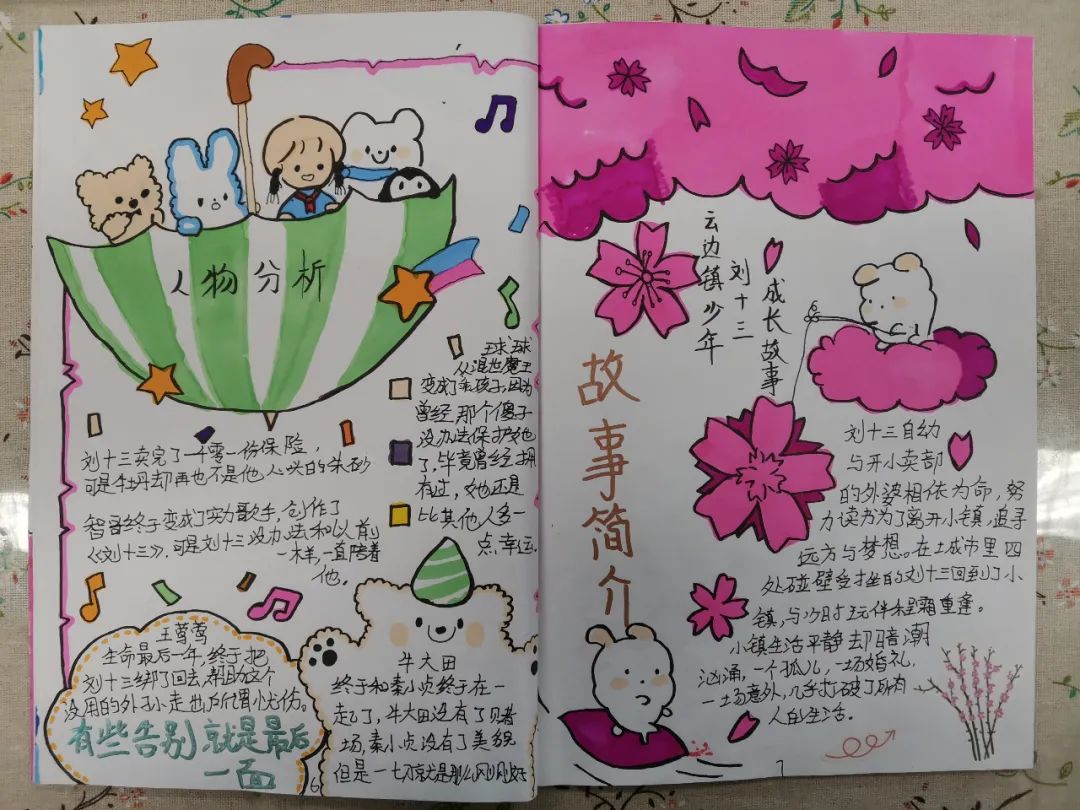 人物分析
刘十三卖完了一千零一份保险，
可是牡丹却再也不是他心尖的朱砂
智哥终于变成了实力歌手，创作了
《刘十三》，可是刘十三没办法和以前
一样，一直陪着
他。
球球
从混世魔王
变成了乖孩子，因为
曾经那个傻子
没办法保护她
了，毕竟曾经拥
有过，她还是
比其他人多一
点幸运。
王莺莺
生命最后一年，终于把
刘十三绑了回去，帮助这个
没用的外孙走出所谓忧伤。
有些告别就是最后
一面
牛大田
终于和秦小贞终于在一
起了，牛大田没有了赌
场，秦小贞没有了美貌
但是一切就是那么刚刚好
6
云边镇少年
刘十三
成长故事
故事简介
刘十三自幼
与开小卖部
的外婆相依为命，努
力读书为了离开小镇，追寻
远方与梦想。在大城市里四
处碰壁受挫的刘十三回到了小
镇，与少时玩伴程霜重逢。
小镇生活平静却暗潮
汹涌，一个孤儿，一场婚礼，
一场意外，几乎打破了所有
人的生活。
7